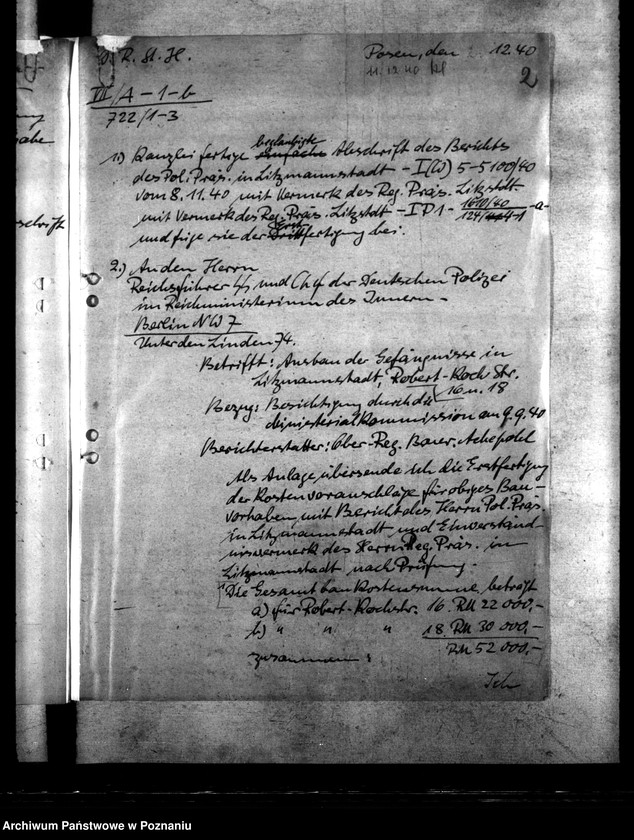 D. R. St. H.
Posen, den 2. 12.40
11.12.40
2
VII/A-1-b
722/1-3
1.) Kanzlei fertige einfache beglaubigte Abschrift des Berichts
des Pol. Präs. in Litzmannstadt - I(W) 5-5100/40
vom 8.11.40, mit Vermerk des Reg. Präs. Litzstdt
mit Vermerk des Reg. Präs. Litzstdt - I D 1 - 1610/40
124/ -1 -a-
und füge sie der fertigung bei.
2.) An den Herrn
Reichsführer SS und Chef der Deutschen Polizei
im Reichministerium des Innern -
Berlin NW 7
Unter den Linden 74.
Betrifft: Ausbau der Gefängnisse in
Litzmannstadt, Robert-Koch Str.
16 u. 18
Bezug: Besichtigung durch die
Ministerialkommission am 9.9.40
Berichterstatter: Ober-Reg. Baurat
Als Anlage übersende ich die Erstfertigung
der Kostenvoranschläge für obiges Bau-
vorhaben, mit Bericht des Herrn Pol. Präs.
in Litzmannstadt und Einverständ-
nisvermerk des Herrn Reg. Präs. in
Litzmannstadt nach Prüfung.
Die Gesamtbaukostensumme beträgt
a) für Robert-Kochstr. 16. RM 22 000,-
b) " " " 18. RM 30 000,-
zusammen: RM 52 000,-
Ich
schrift
Archiwum Państwowe w Poznaniu